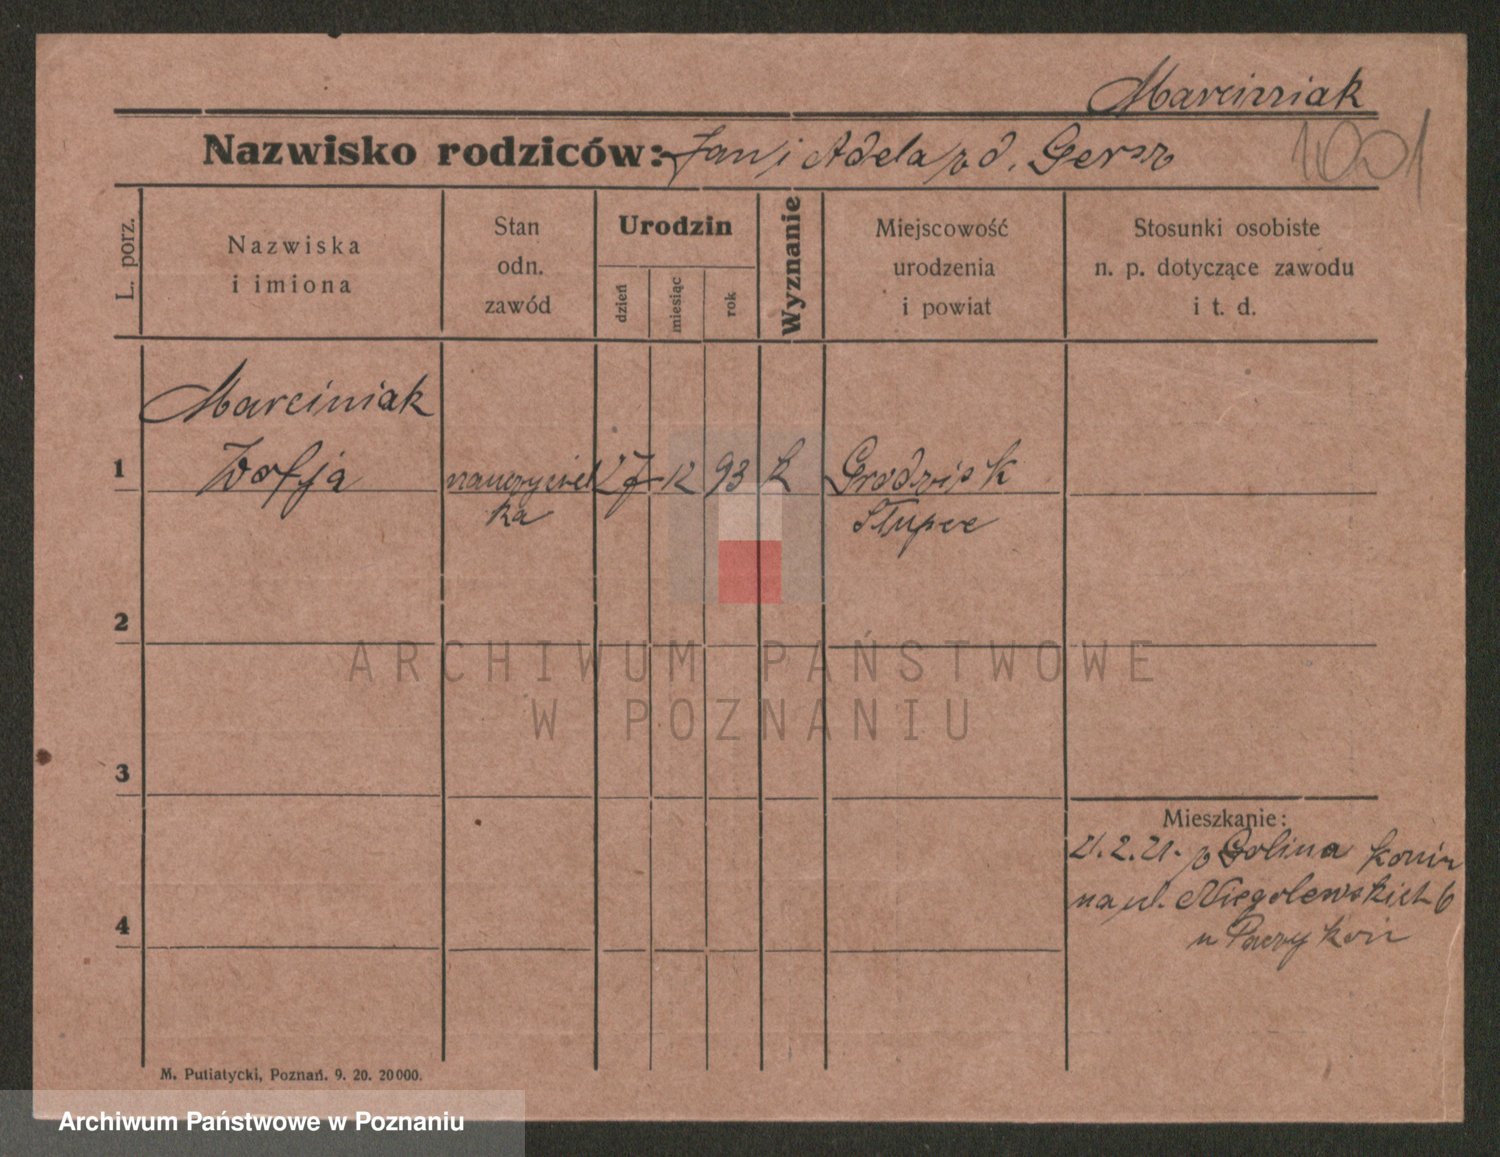 Marciniak
Nazwisko rodziców: Jan i Adela z d. Gersz
1001
L. porz.
Nazwiska
i imiona
Stan
odn.
zawód
Urodzin
dzień
miesiąc
rok
Wyznanie
Miejscowość
urodzenia
i powiat
Stosunki osobiste
n. p. dotyczące zawodu
i t. d.
Marciniak
1 Zofja nauczyciel 27 12 93 k Grodzisk
ka Słupce
2
ARCHIWUM PAŃSTWOWE
W POZNANIU
3
Mieszkanie:
21.2.21. z Golina Konin
na ul. Niegolewskich 6
4
u
M. Putiatycki, Poznań. 9. 20. 20000.
Archiwum Państwowe w Poznaniu